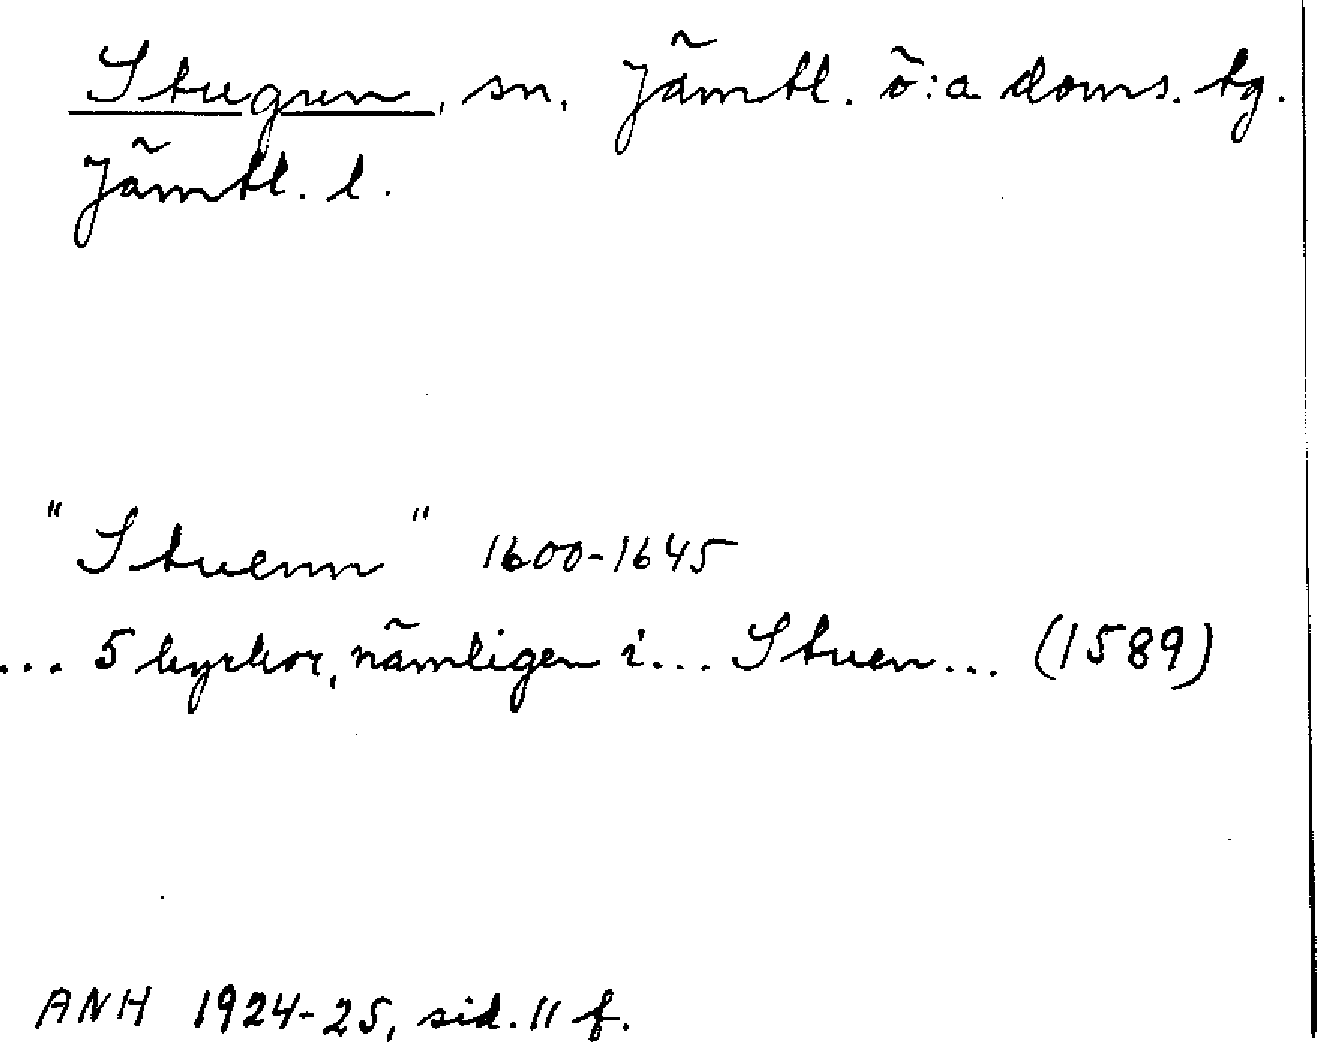 Stugun, sn. Jämtl. ö:a doms. tg.
Jämtl. l.
"Stuenn" 1600-1645
... 5 kyrkor, nämligen i... Stuen... (1589)
ANH 1924-25, sid. 11 f.